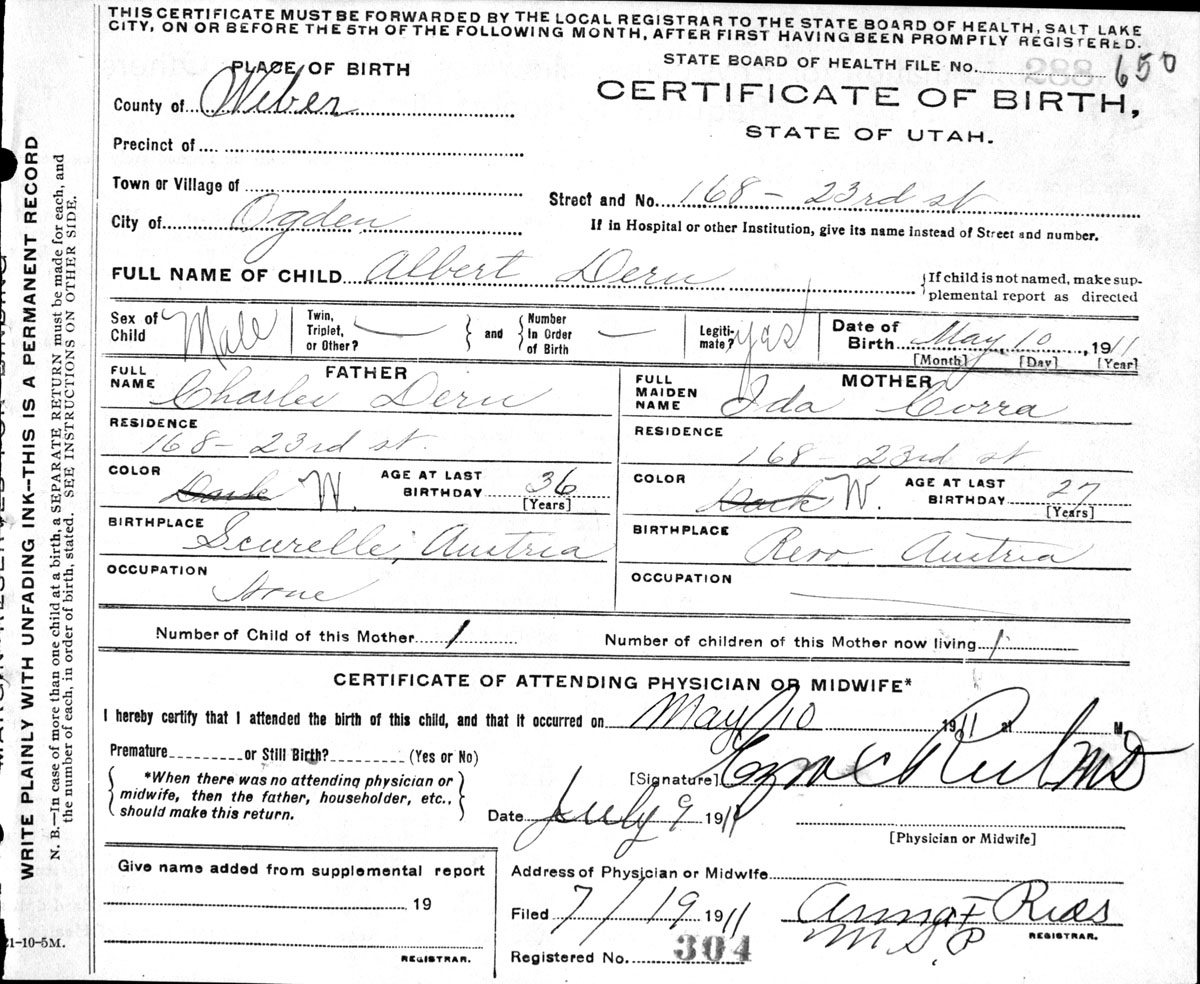 THIS CERTIFICATE MUST BE FORWARDED BY THE LOCAL REGISTRAR TO THE STATE BOARD OF HEALTH, SALT LAKE
CITY, ON OR BEFORE THE 5TH OF THE FOLLOWING MONTH, AFTER FIRST HAVING BEEN PROMPTLY REGISTERED.
PLACE OF BIRTH
STATE BOARD OF HEALTH FILE No. 288 650
County of Weber
CERTIFICATE OF BIRTH,
STATE OF UTAH.
Precinct of
Town or Village of
Street and No. 168 - 23rd st
City of Ogden
If in Hospital or other Institution, give its name instead of Street and number.
FULL NAME OF CHILD Albert Dern
If child is not named, make sup-
plemental report as directed
Sex of Child Male
Twin, Triplet, or Other? —
and
Number In Order of Birth —
Legiti-mate? yas
Date of Birth May 10, 1911
[Month] [Day] [Year]
FATHER
FULL NAME Charles Dern
RESIDENCE
168 - 23rd st.
COLOR Dark W.
AGE AT LAST BIRTHDAY 36
[Years]
BIRTHPLACE
Scurelle, Austria
OCCUPATION
MOTHER
FULL MAIDEN NAME Ida Corra
RESIDENCE
168 - 23rd st
COLOR Dark W.
AGE AT LAST BIRTHDAY 27
[Years]
BIRTHPLACE
Revo Austria
OCCUPATION
Number of Child of this Mother 1
Number of children of this Mother now living 1
CERTIFICATE OF ATTENDING PHYSICIAN OR MIDWIFE*
I hereby certify that I attended the birth of this child, and that it occurred on May 10 1911 at M.
Premature or Still Birth? (Yes or No)
*When there was no attending physician or
midwife, then the father, householder, etc.,
should make this return.
[Signature] MD
Date July 9 1911
[Physician or Midwife]
Give name added from supplemental report
19
REGISTRAR.
Address of Physician or Midwife
Filed 7/19 1911
Anna F Rees
REGISTRAR.
Registered No. 304
21-10-5M.
WRITE PLAINLY WITH UNFADING INK—THIS IS A PERMANENT RECORD
N. B.—In case of more than one child at a birth, a SEPARATE RETURN must be made for each, and
the number of each, in order of birth, stated. SEE INSTRUCTIONS ON OTHER SIDE.